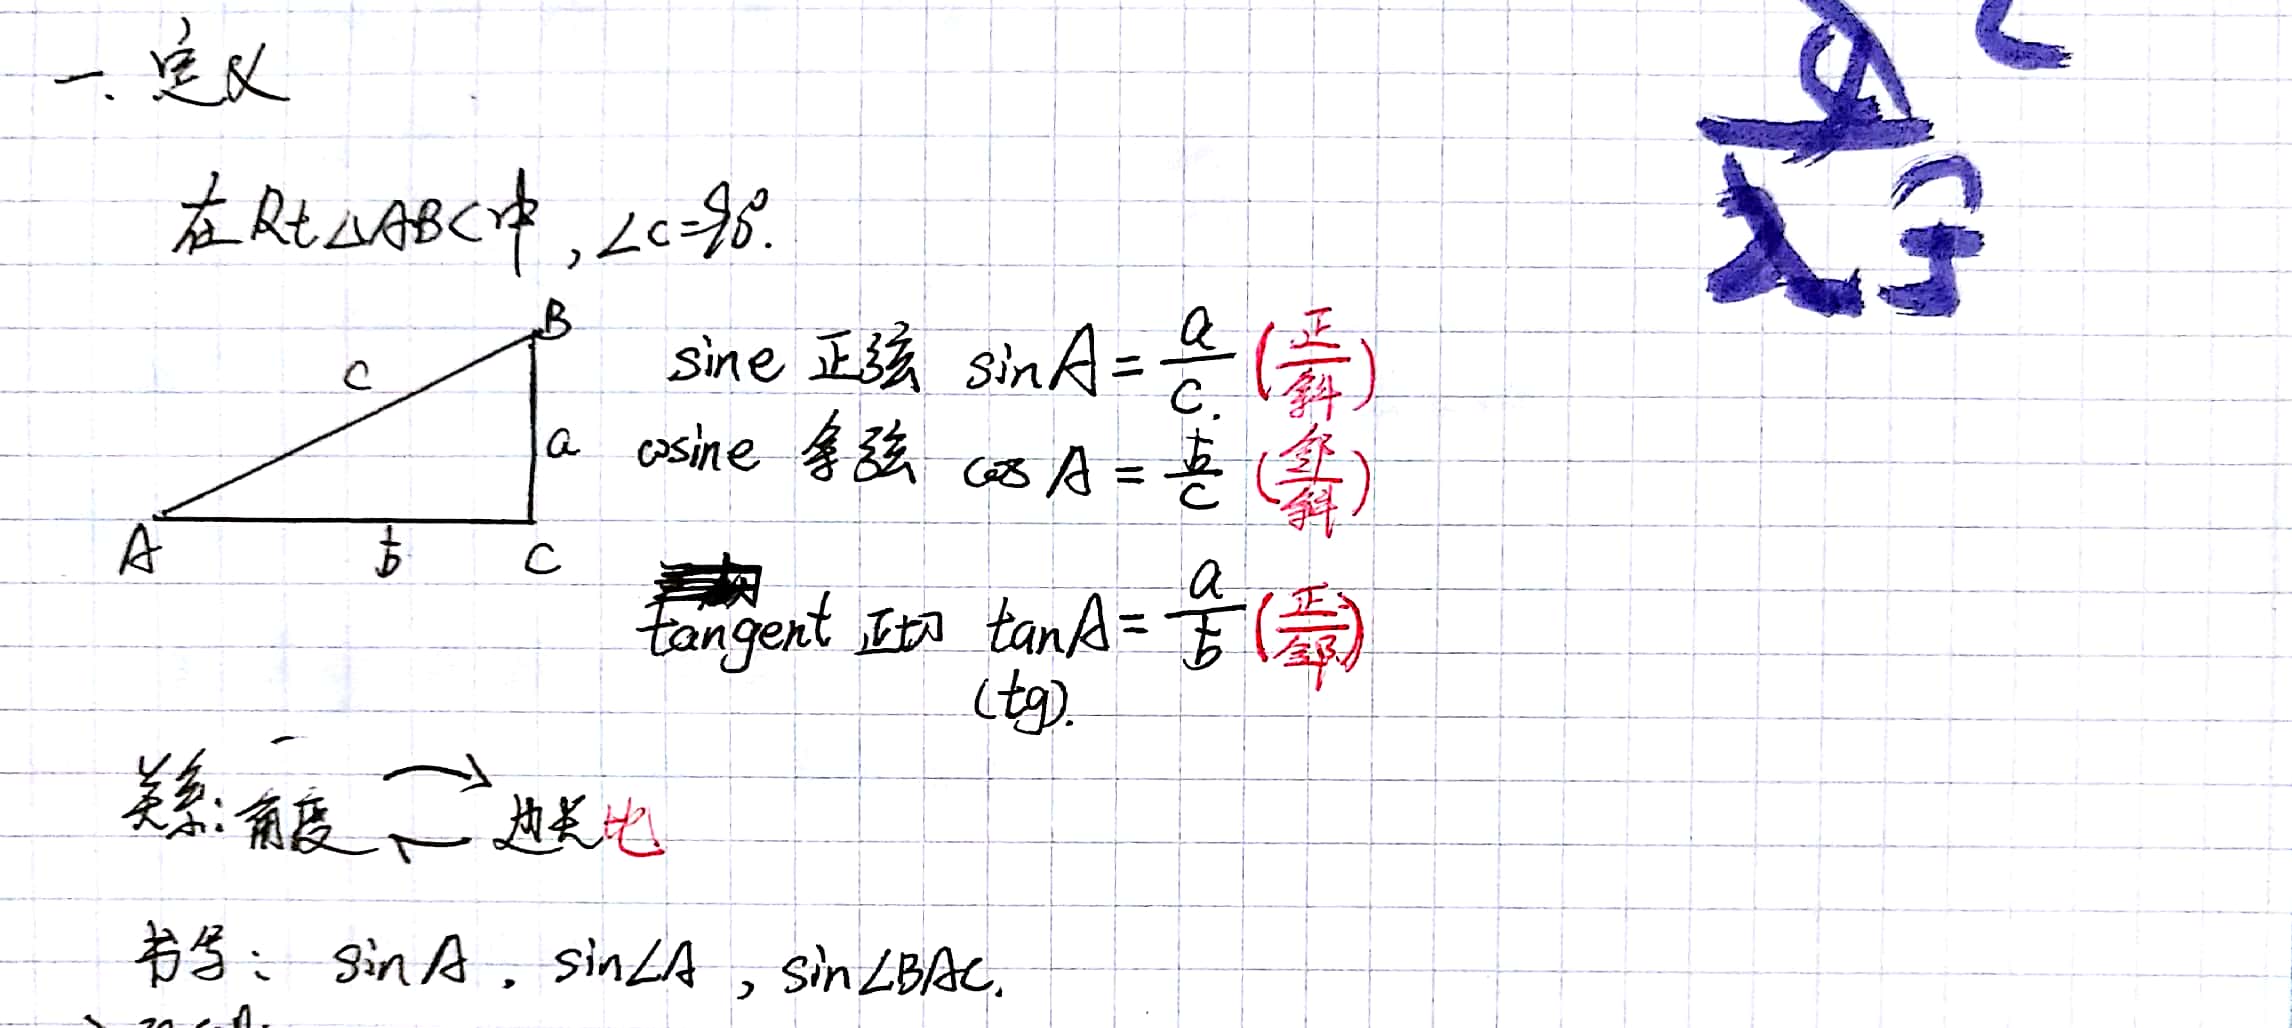 一. 定义
在Rt△ABC中, ∠C=90°.
B
c
a
A
b
C
sine 正弦 sinA = a/c. (正/斜)
cosine 余弦 cos A = b/c (邻/斜)
tangent 正切 tanA = a/b (正/邻)
(tg).
关系: 角度 ⇄ 边长比
书写: sinA. sin∠A, sin∠BAC.